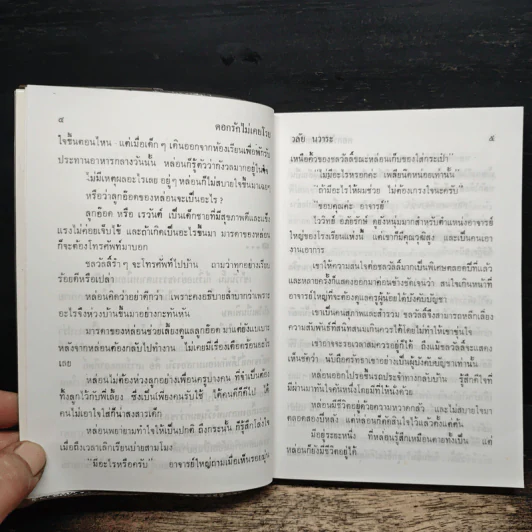 ๔
ดอกรักไม่เคยโรย
ใจขึ้นตอนไหน แต่เมื่อเด็กๆ เดินออกจากห้องเรียนเพื่อพักรับ
ประทานอาหารกลางวันนั้น หล่อนก็รู้ตัวว่ากังวลมากอยู่ในใจ
ไม่มีเหตุผลอะไรเลย อยู่ๆ หล่อนก็ไม่สบายใจขึ้นมาเฉยๆ
หรือว่าลูกอ๊อดของหล่อนจะเป็นอะไร?
ลูกอ๊อด หรือ เรวันต์ เป็นเด็กชายที่มีสุขภาพดีและแข็ง
แรงไม่ค่อยเจ็บไข้ และถ้าเกิดเป็นอะไรขึ้นมา มารดาของหล่อน
ก็จะต้องโทรศัพท์มาบอก
ชลวัลลิ์รำๆ จะโทรศัพท์ไปบ้าน ถามว่าทุกอย่างเรียบ
ร้อยดีหรือเปล่า
หล่อนคิดว่าอย่าดีกว่า เพราะคงอธิบายลำบากว่าเพราะ
อะไรจึงห่วงบ้านขึ้นมาอย่างกะทันหัน
มารดาของหล่อนช่วยเลี้ยงดูลูกอ๊อด มาแต่ยังแบเบาะ
หลังจากหล่อนต้องกลับไปทำงาน ไม่เคยมีเรื่องเดือดร้อนอะไร
เลย
หล่อนไม่ต้องห่วงลูกอย่างเพื่อนครูบางคน ที่จำเป็นต้อง
ทิ้งลูกไว้กับพี่เลี้ยง ซึ่งเป็นเพียงคนรับใช้ ได้คนดีก็ดีไป ได้
คนไม่เอาใจใส่ก็น่าสงสารเด็ก
หล่อนพยายามทำใจให้เป็นปกติ ถึงกระนั้น ก็รู้สึกโล่งใจ
เมื่อถึงเวลาเลิกเรียนบ่ายสามโมง
"มีอะไรหรือครับ" อาจารย์ใหญ่ถามเมื่อเห็นรอย
วลัย นวาระ
๕
เหนือคิ้วของชลวัลลิ์ขณะหล่อนเก็บของใส่กระเป๋า
"ไม่มีอะไรหรอกค่ะ เพลียนิดหน่อยเท่านั้น"
"ถ้ามีอะไรให้ผมช่วย ไม่ต้องเกรงใจนะครับ"
"ขอบคุณค่ะ อาจารย์"
ไววิทย์ ดูยังหนุ่มมากสำหรับตำแหน่งอาจารย์
ใหญ่ของโรงเรียนแห่งนี้ แต่เขาก็มีคุณวุฒิสูง และเป็นคนเอา
งานเอาการ
เขาให้ความสนใจต่อชลวัลลิ์มากเป็นพิเศษตลอดปีที่แล้ว
และหลายครั้งก็แสดงออกมาค่อนข้างชัดเจนว่า สนใจเกินหน้าที่
อาจารย์ใหญ่ที่จะต้องดูแลครูผู้น้อยใต้บังคับบัญชา
เขาเป็นคนสุภาพและสำรวม ชลวัลลิ์จึงสามารถหลีกเลี่ยง
ความสัมพันธ์ที่สนิทสนมเกินควรได้โดยไม่ทำให้เขาขุ่นใจ
เขาอาจจะรอเวลาสมควรอยู่ก็ได้ ถึงแม้ชลวัลลิ์จะแสดง
ให้ชัดว่า นับถือศรัทธาเขาอย่างเป็นผู้บังคับบัญชาเท่านั้น
หล่อนออกไปรอขึ้นรถประจำทางกลับบ้าน รู้สึกดีใจที่
มีผ่านมาทันใจคันหนึ่งโดยมีที่ให้นั่งด้วย
หล่อนมีชีวิตอยู่ด้วยความหวาดกลัว และไม่สบายใจมา
ตลอดสองปีหลัง แต่หล่อนก็ตัดสินใจไว้แล้วตั้งแต่ต้น
มีอยู่ระยะหนึ่ง ที่หล่อนรู้สึกเหมือนตายทั้งเป็น แต่
หล่อนก็ยังมีชีวิตอยู่ได้